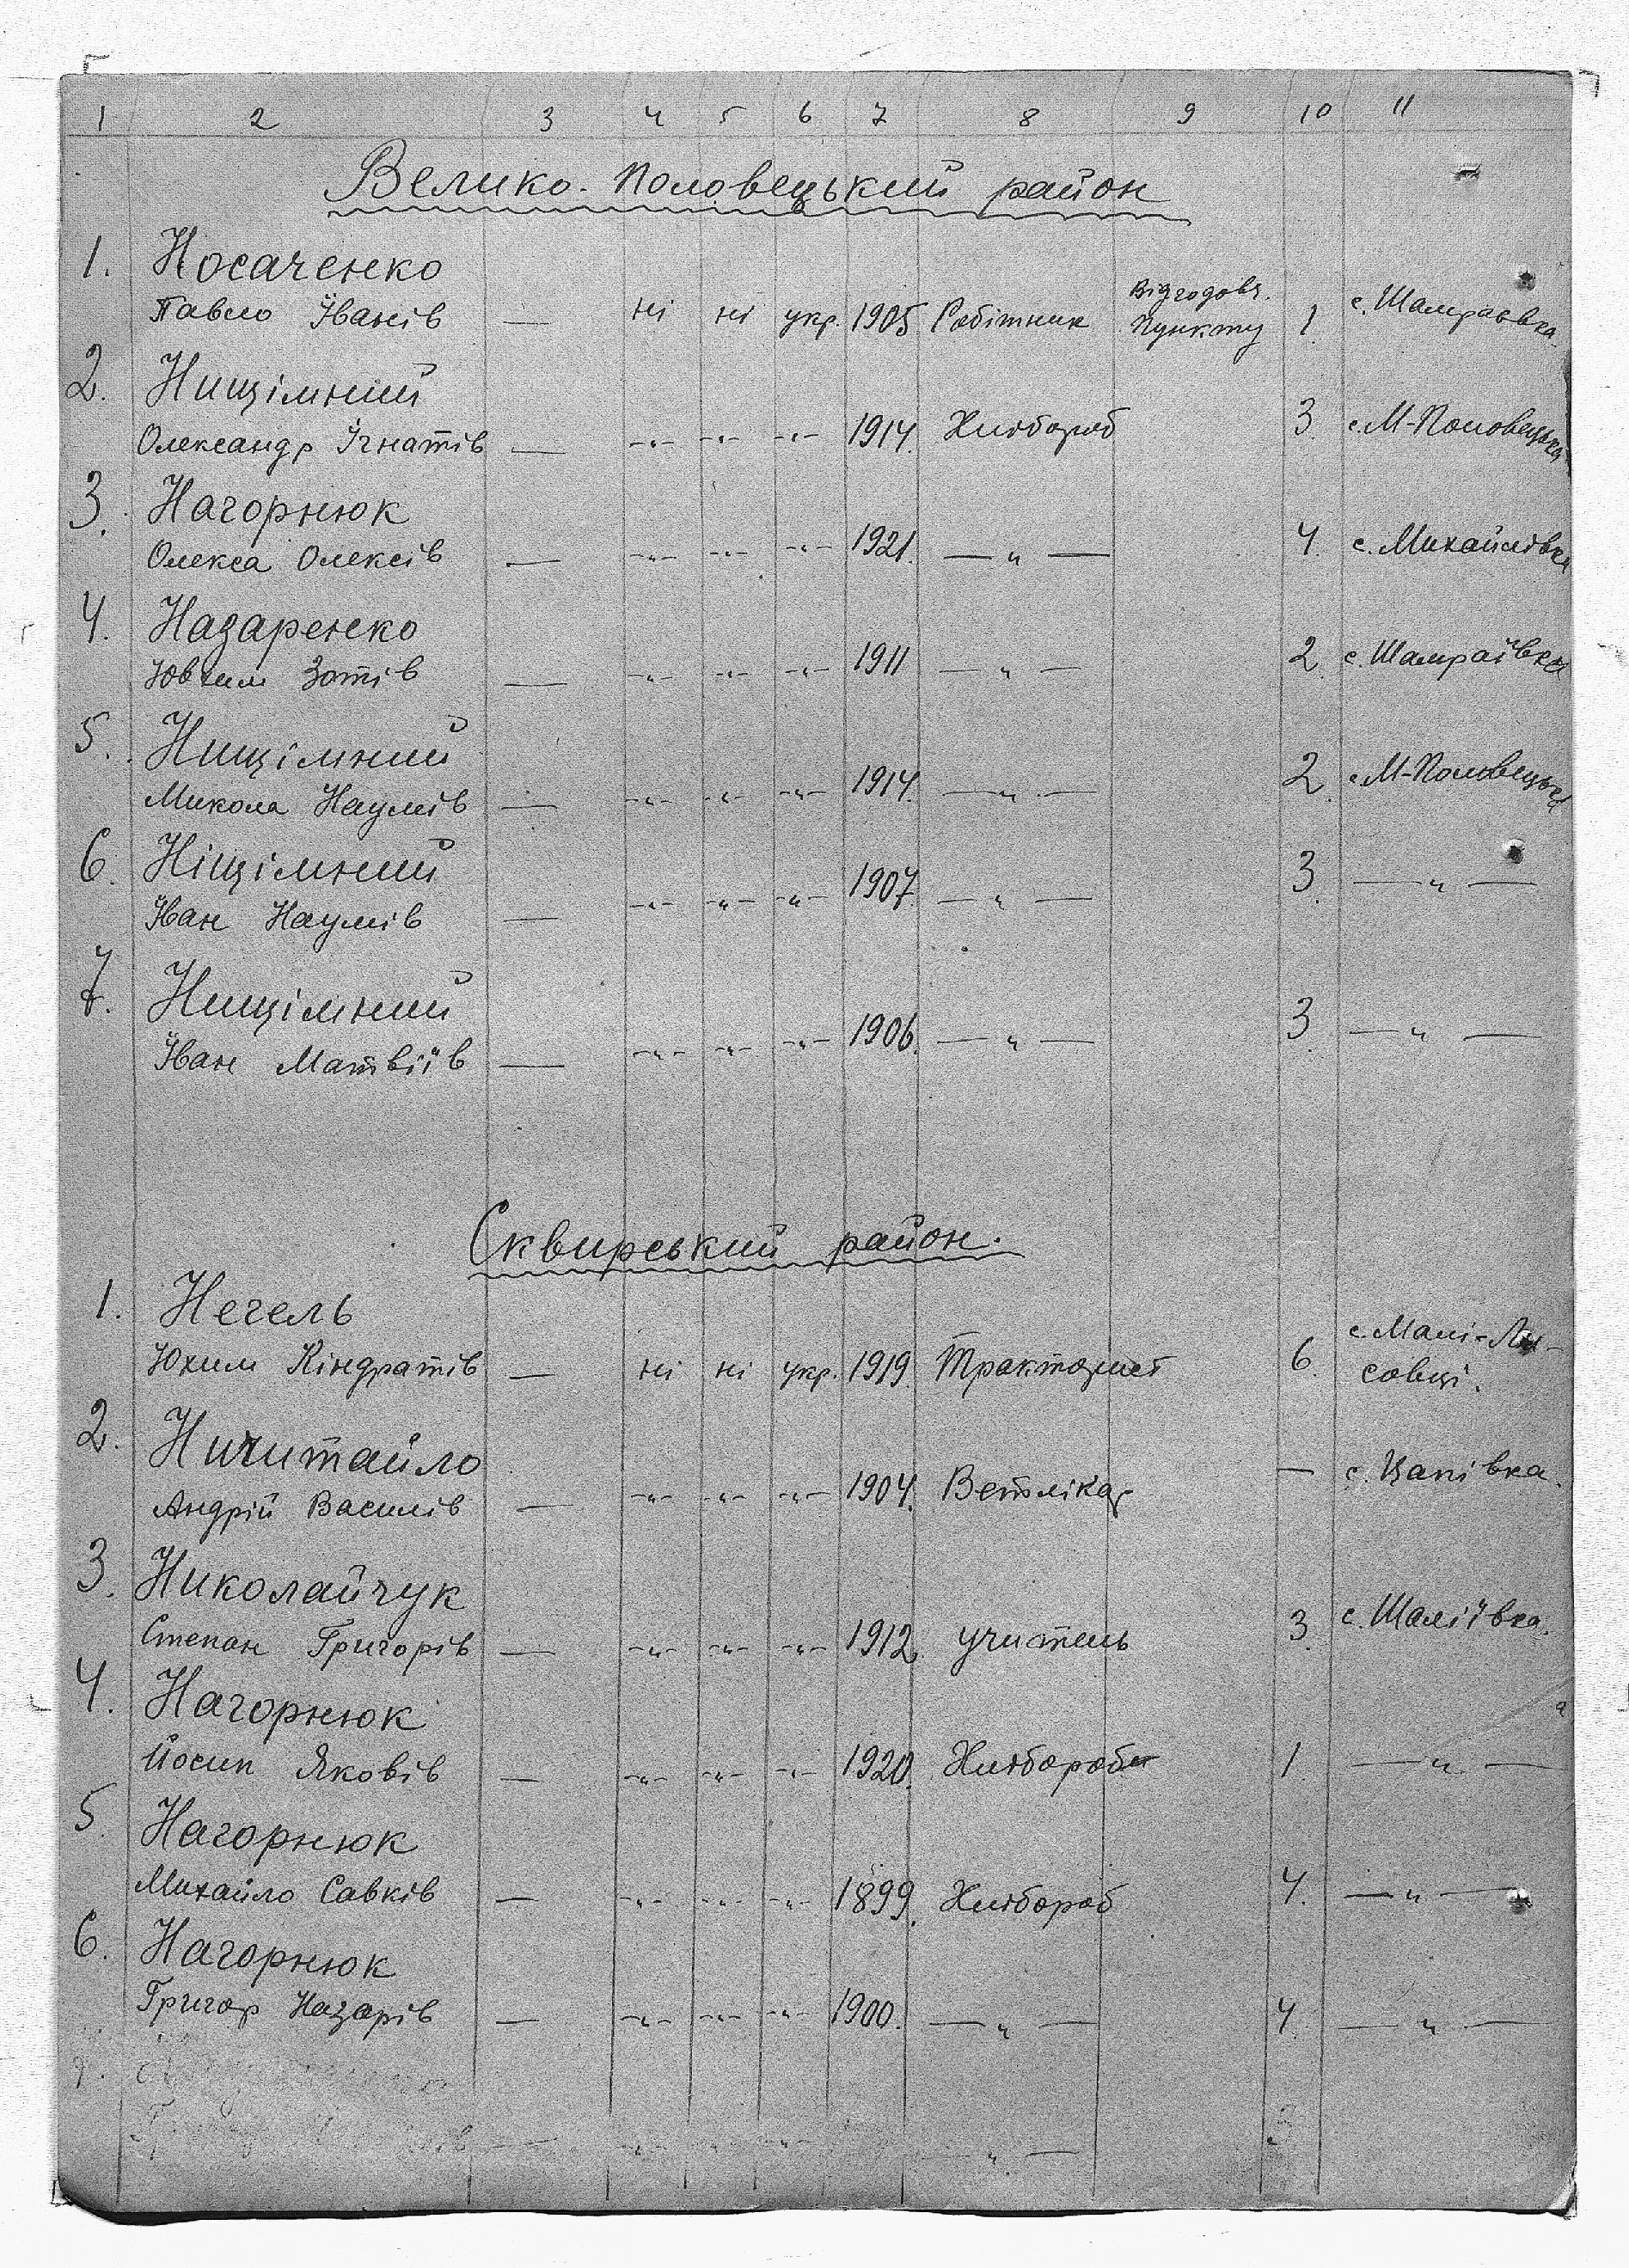 1 2 3 4 5 6 7 8 9 10 11
Велико-Половецький район
1. Носаченко
Павло Іванів — ні ні укр. 1905 Робітник Відгодовч. Пункту 1. с. Шамраєвка.
2. Нищімний
Олександр Ігнатів — -"- -"- -"- 1914. Хлібороб 3. с. М-Половецька
3. Нагорнюк
Олекса Олексів — -"- -"- -"- 1921. — " — 4. с. Михайлівка
4. Назаренко
Ювхим Зотів — -"- -"- -"- 1911 — " — 2. с. Шамраївка
5. Нищімний
Микола Наумів — -"- -"- -"- 1914. — " — 2. с. М-Половецька
6. Ніщімний
Іван Наумів — -"- -"- -"- 1907. — " — 3. — " —
7. Нищімний
Іван Матвіїв — -"- -"- -"- 1906. — " — 3. — " —
Сквирський район.
1. Негель
Юхим Кіндратів — ні ні укр. 1919. Тракторист 6. с. Малі-Ли-
совці.
2. Ничитайло
Андрій Василів — -"- -"- -"- 1904. Ветлікар — с. Цапівка.
3. Николайчук
Степан Григорів — -"- -"- -"- 1912. учитель 3. с. Шаліївка.
4. Нагорнюк
Йосип Яковів — -"- -"- -"- 1920. Хлібороб 1. — " —
5. Нагорнюк
Михайло Савків — -"- -"- -"- 1899. Хлібороб 4. — " —
6. Нагорнюк
Григор Назарів — -"- -"- -"- 1900. — " — 4. — " —